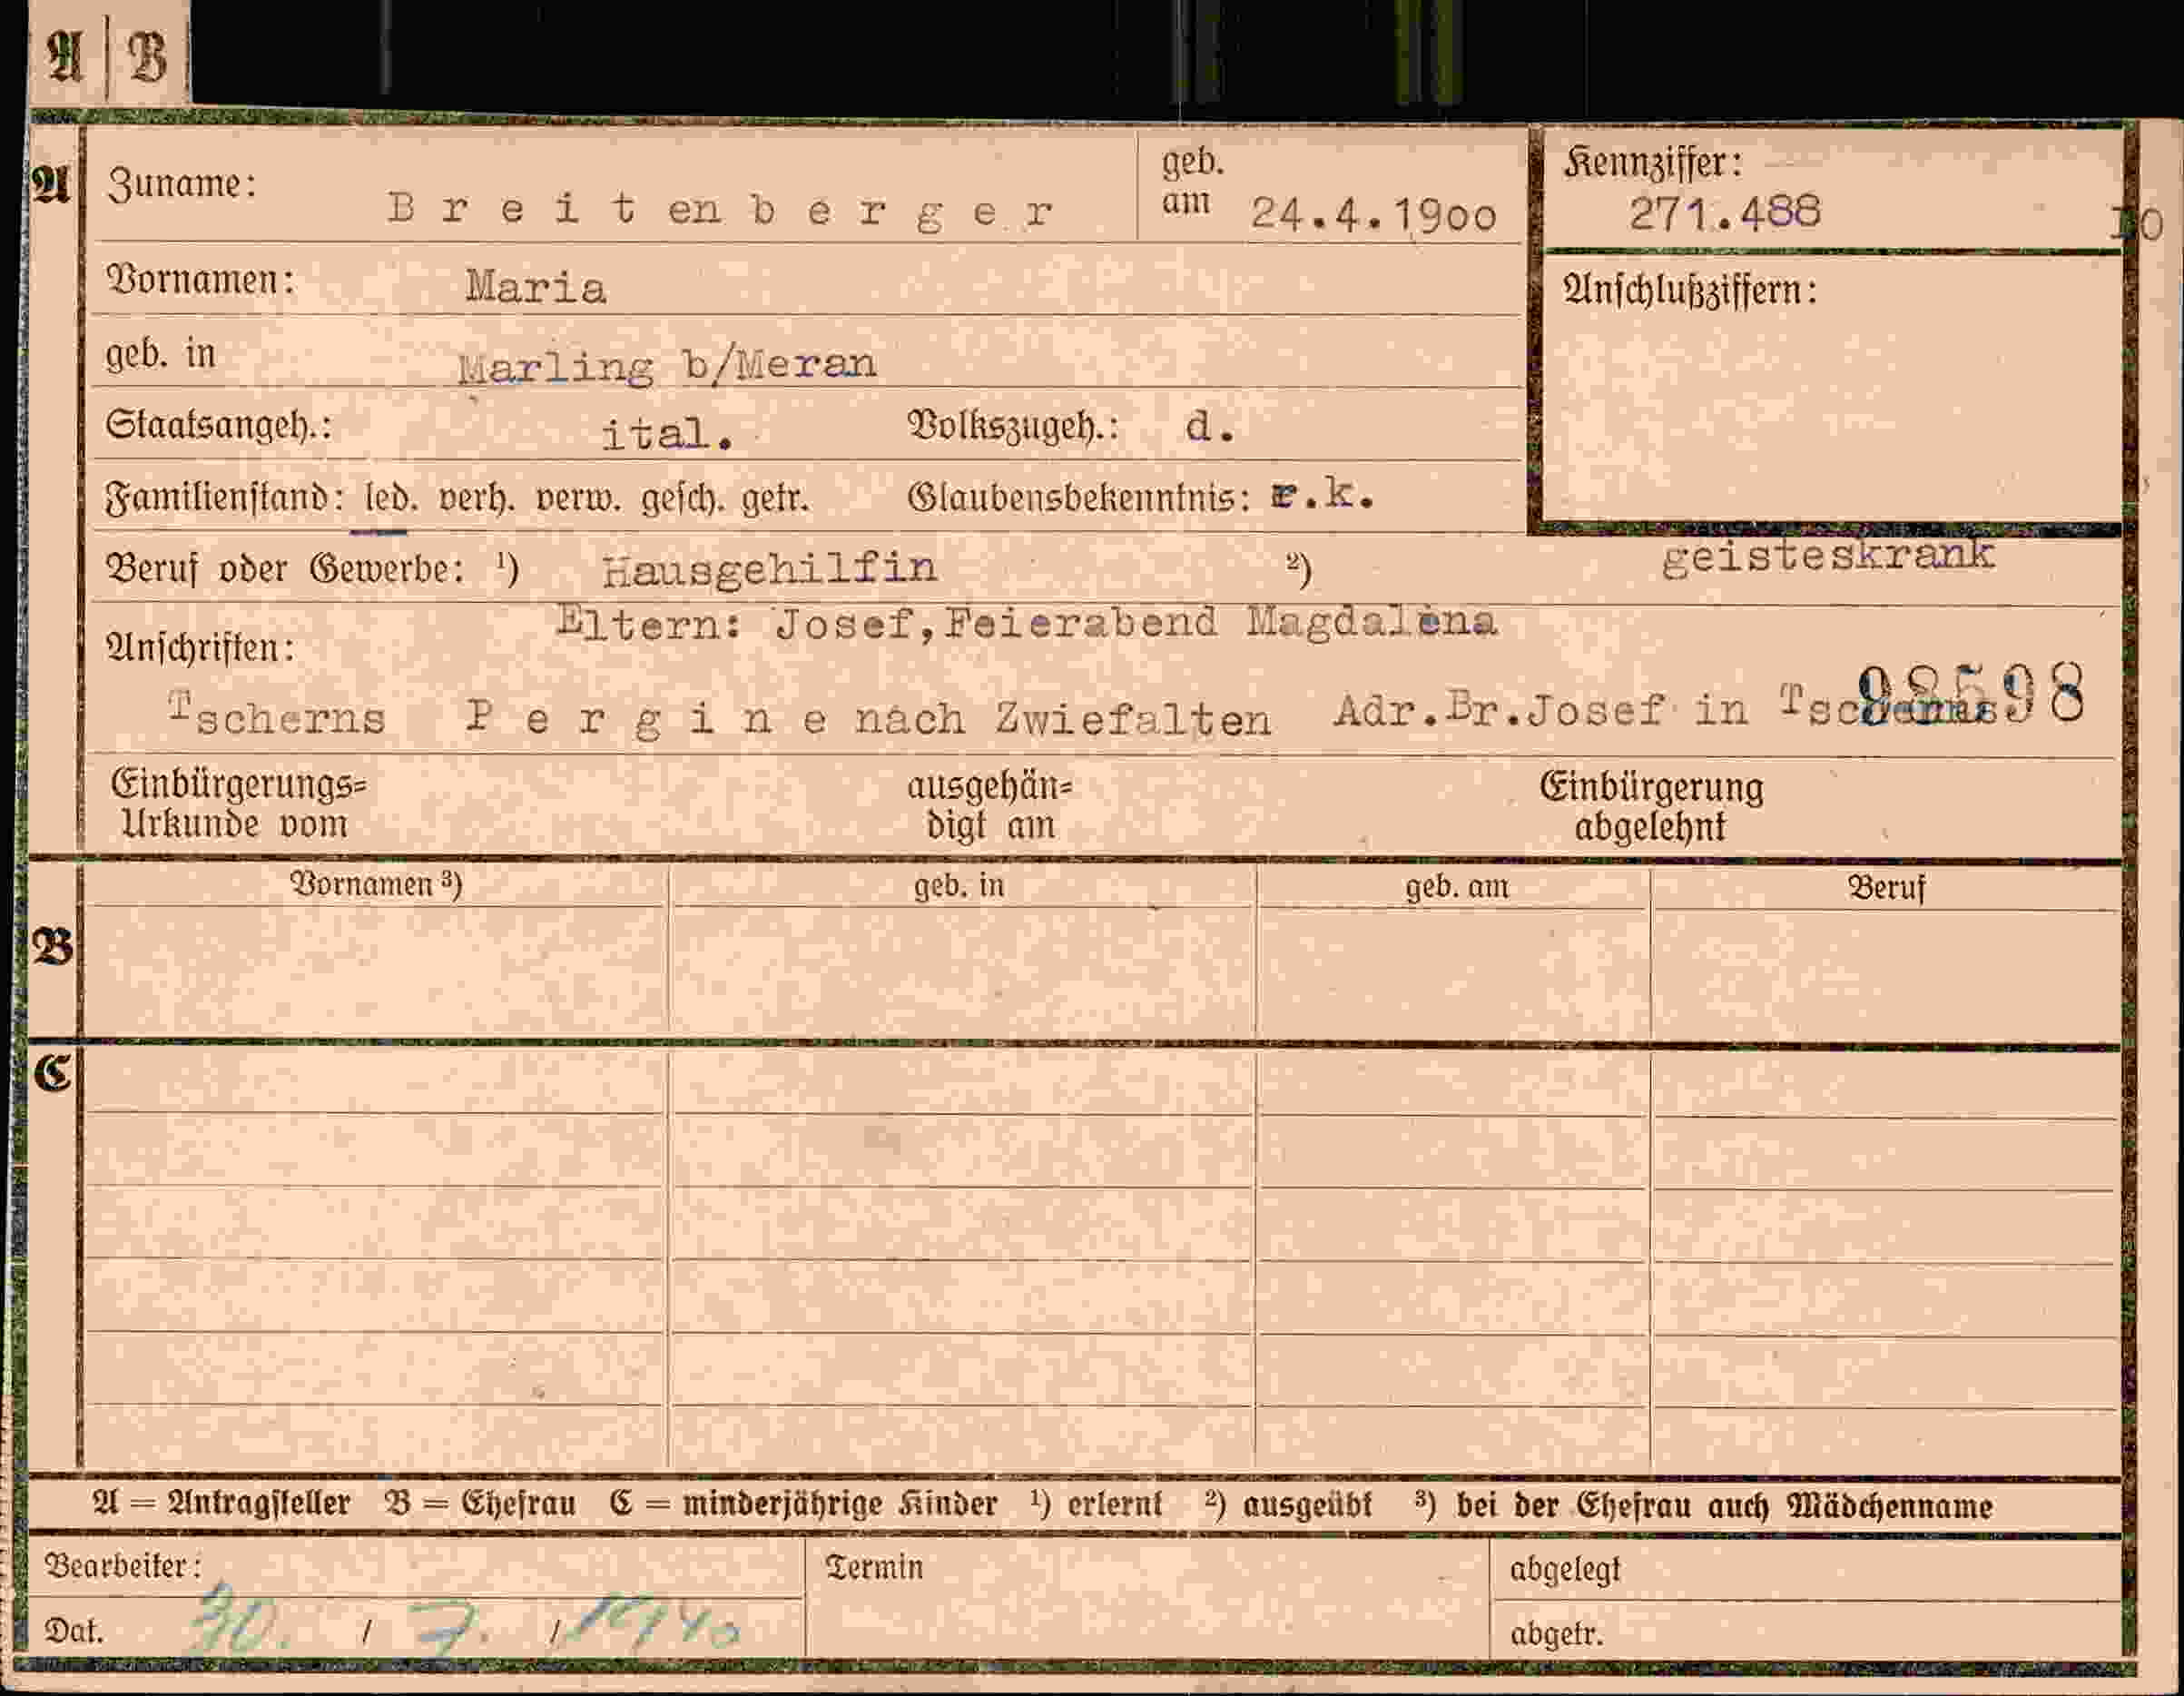 A | B
A Zuname: Breitenberger geb. am 24.4.1900 Kennziffer: 271.488
Vornamen: Maria Anschlußziffern:
geb. in Marling b/Meran
Staatsangeh.: ital. Volkszugeh.: d.
Familienstand: led. verh. verw. gesch. getr. Glaubensbekenntnis: r.k.
Beruf oder Gewerbe: ¹) Hausgehilfin ²) geisteskrank
Eltern: Josef, Feierabend Magdalena
Anschriften:
98598
Tscherns Pergine nach Zwiefalten Adr.Br.Josef in
Einbürgerungs= ausgehän= Einbürgerung
Urkunde vom digt am abgelehnt
Vornamen ³) geb. in geb. am Beruf
B
C
A = Antragsteller B = Ehefrau C = minderjährige Kinder ¹) erlernt ²) ausgeübt ³) bei der Ehefrau auch Mädchenname
Bearbeiter: Termin abgelegt
Dat. 30. / 7. / 1940 abgetr.